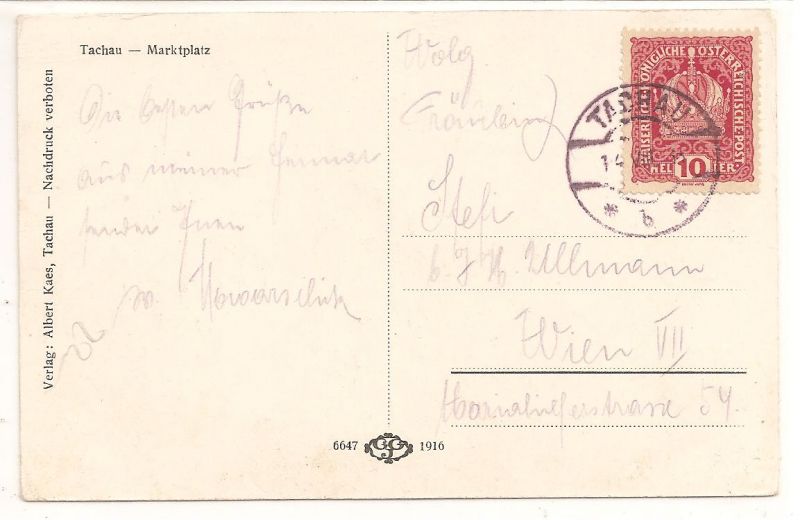 Tachau — Marktplatz
Verlag: Albert Kaes, Tachau — Nachdruck verboten
Die besten Grüße
aus meiner Heimat
sendet Ihnen
Wolg.
Fräulein
Stefi
b. J. H. Ullmann
Wien VII
Mariahilferstrasse 54.
KAISERLICHE KÖNIGLICHE ÖSTERREICHISCHE POST
HELLER 10
TACHAU
14 VIII
* b *
6647 1916